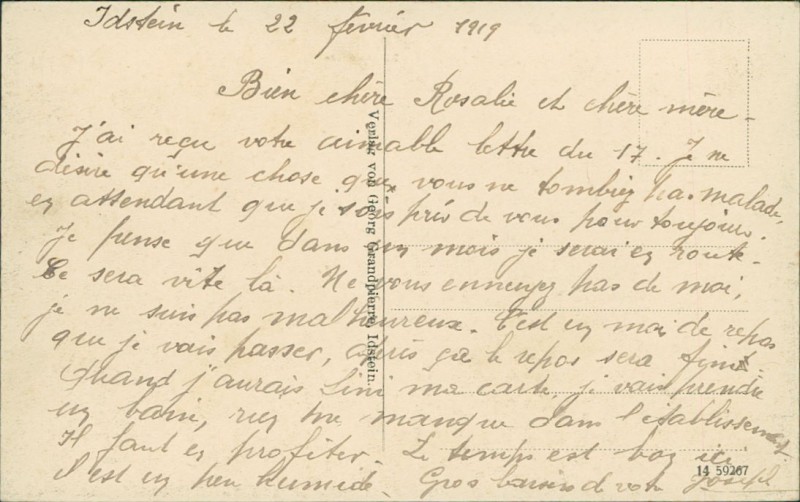 Idstein le 22 février 1919
Bien chère Rosalie et chère mère -
J'ai reçu votre aimable lettre du 17. Je ne
désire qu'une chose que vous ne tombiez pas malade,
en attendant que je sois près de vous pour toujours.
Je pense que dans un mois je serai en route.
Ce sera vite là. Ne vous ennuyez pas de moi,
je ne suis pas malheureux. C'est un moi de repos
que je vais passer, après ça le repos sera fini.
Quand j'aurais fini ma carte, je vais prendre
un bain, rien me manque dans l'établissement
Il faut en profiter. Le temps est bon ici
il est un peu humide. Gros baisers de votre Joseph
Verlag von Georg Grandpierre, Idstein.
14 59267